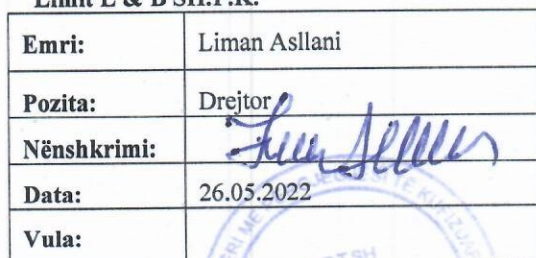 Limit L & B SH.P.K.
Emri: Liman Asllani
Pozita: Drejtor
Nënshkrimi:
Data: 26.05.2022
Vula: